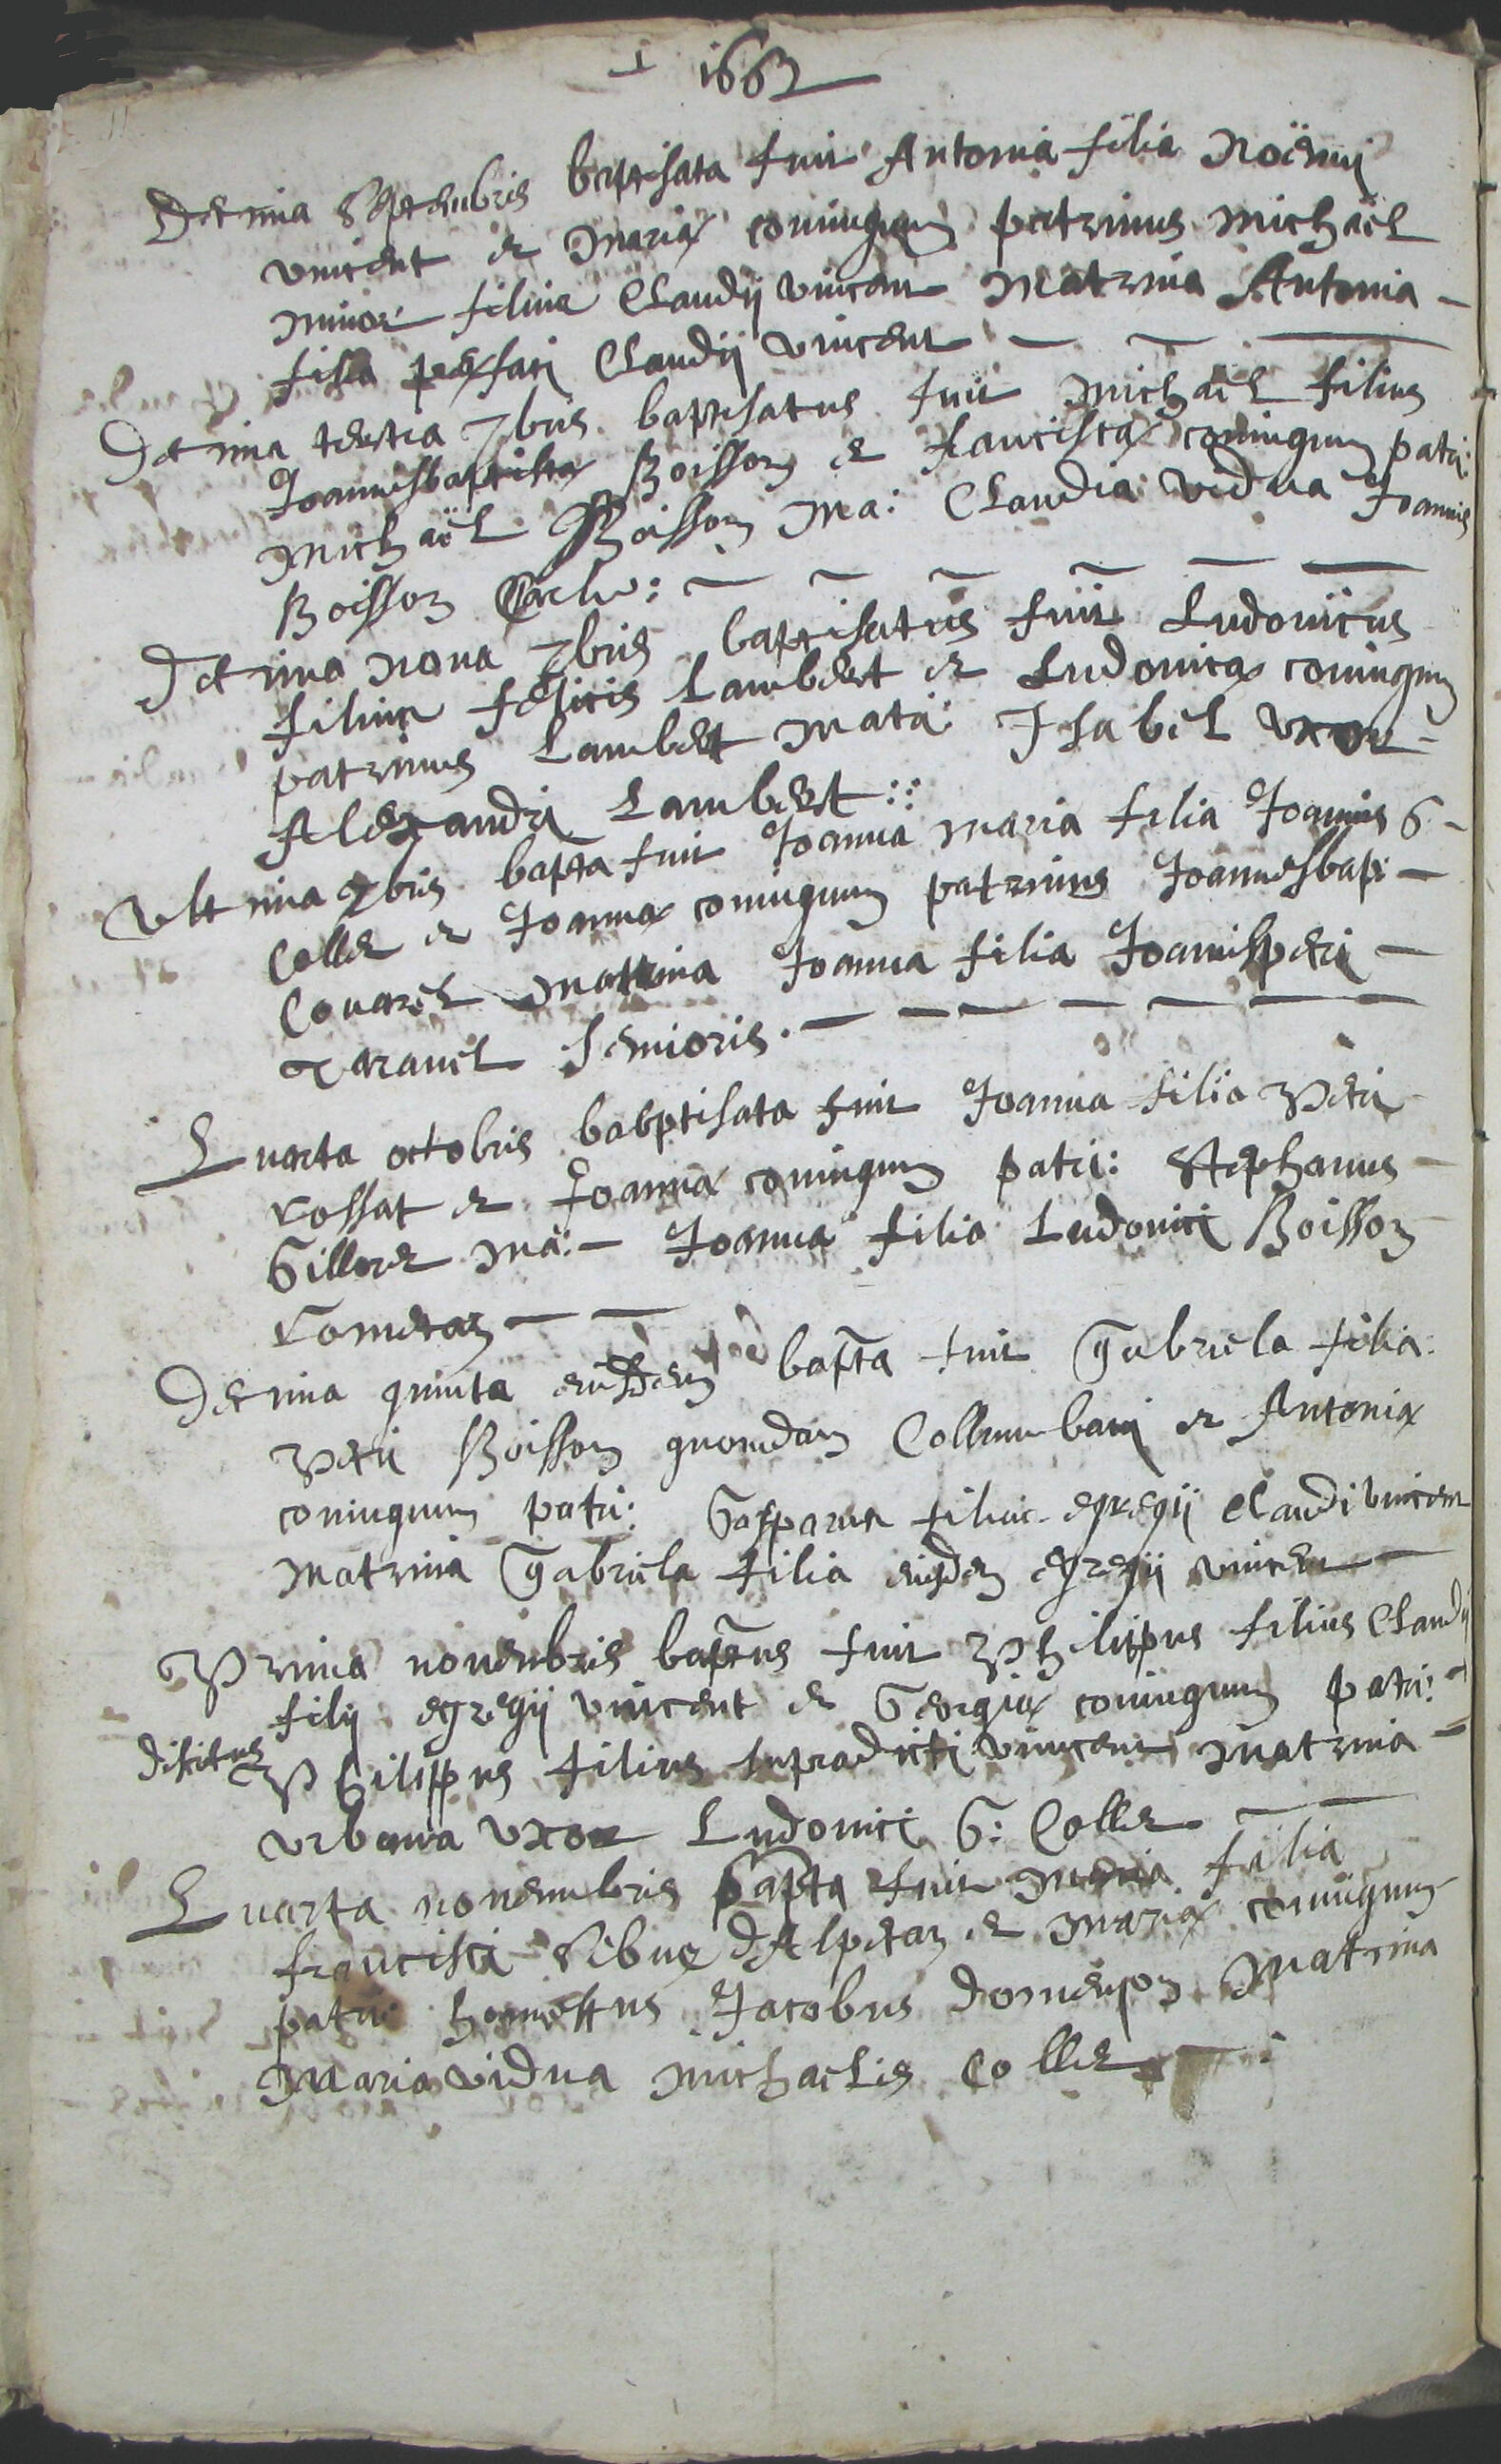 1663
Decima septembris baptisata fuit Antonia filia Noëmij
vincent et Mariæ coniugum patrinus Michaël
minor filius Claudij vincent Matrina Antonia
filia præfati Claudij vincent
Decima tertia 7bris baptisatus fuit Michaël filius
Joannisbaptistæ Boisson et franciscæ coniugum patri:
Michaël Boisson Ma: Claudia vidua Joannis
Boisson
Decima nona 7bris baptisatus fuit Ludovicus
filius felicis Lambert et Ludovicæ coniugum
patrinus Lambert Matri: Isabel uxor
Alexandri Lambert
Ultima 7bris bapta fuit Joanna Maria filia Joannis G
Coller et Joannæ coniugum patrinus Joannesbapt
Covarel Matrina Joanna filia Joannispetri
Caravel senioris
Quarta octobris babptisata fuit Joanna filia Petri
rossat et Joannæ coniugum patri: Stephanus
Gillore Ma: Joanna filia Ludovici Boisson
rometan
Decima quinta eiusdem bapta fuit Gabriela filia
Petri Boisson quondam Collumbani et Antoniæ
coniugum patri: Gasparus filius egregij Claudi vincent
Matrina Gabriela filia eiusdem egregij vincent
Prima novembris baptus fuit Philippus filius Claudij
filij egregij vincent et Georgiæ coniugum patri:
Philippus filius supradicti vincent Matrina
urbana uxor Ludovici G: Coller
Quarta novembris bapta fuit Maria filia
francisci Sibue dAlpetaz et Mariæ coniugum
patri: honestus Jacobus domenjon Matrina
Maria vidua Michaelis Coller